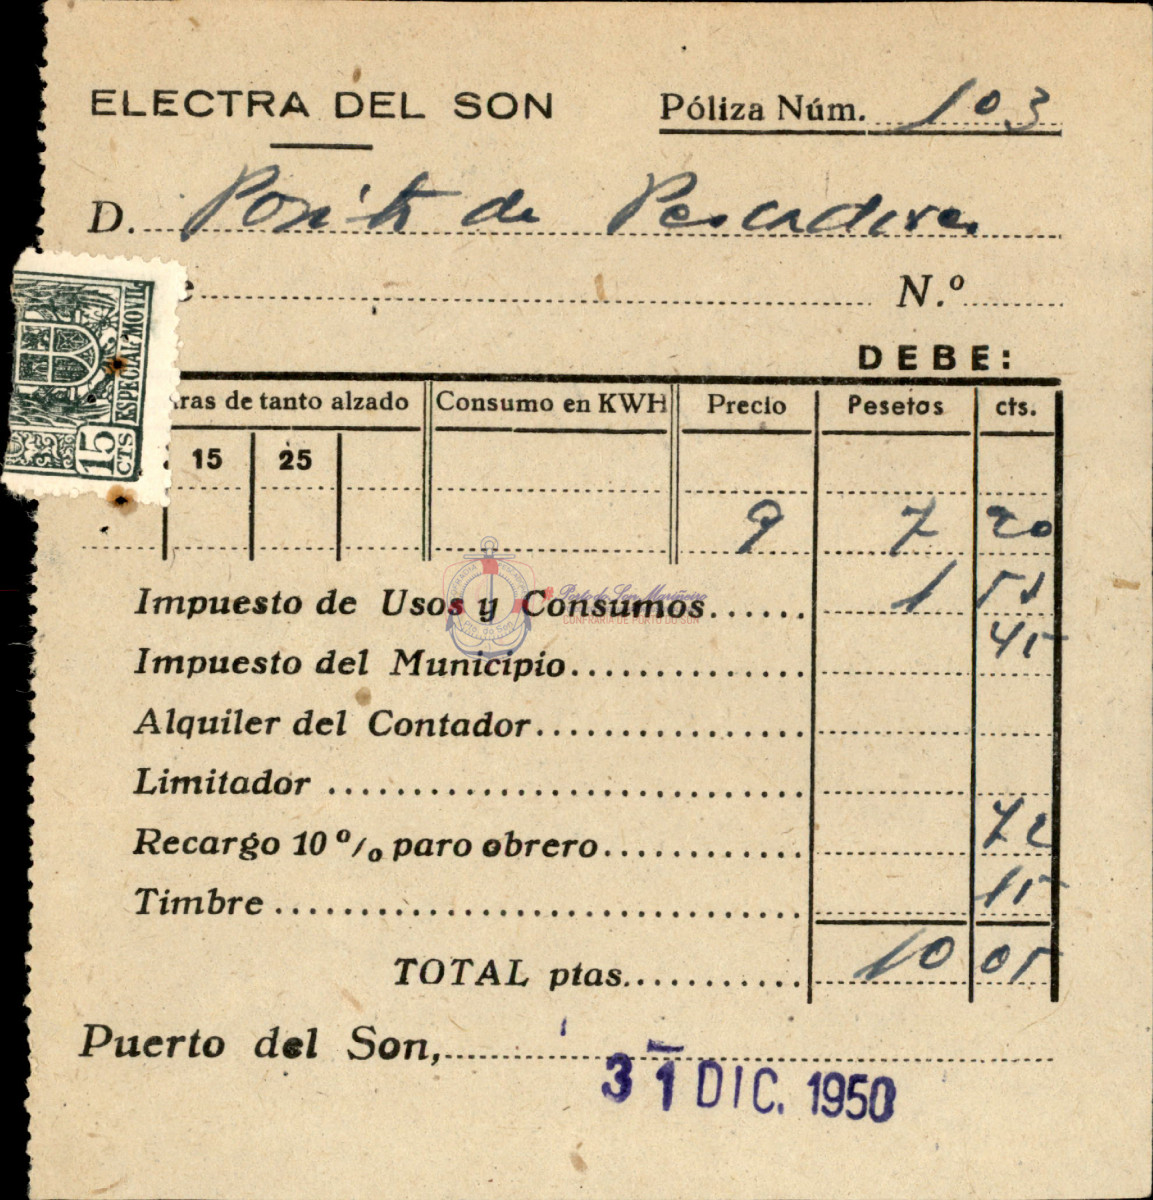 ELECTRA DEL SON
Póliza Núm. 103
D. Posito de Pescadores
e N.º
DEBE:
ESPECIAL MOVIL
15 CTS
ras de tanto alzado Consumo en KWH Precio Pesetas cts.
15 25
9 7 20
Impuesto de Usos y Consumos 1 53
Porto do Son Mariñeiro
CONFRARÍA DE PORTO DO SON
Impuesto del Municipio 45
Alquiler del Contador
Limitador
Recargo 10 % paro obrero 72
Timbre 15
TOTAL ptas. 10 05
Puerto del Son,
31 DIC. 1950